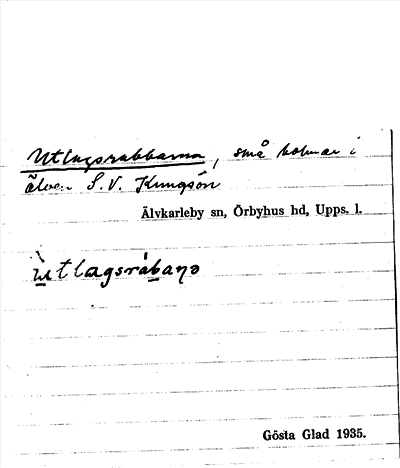 Utlagsrabbarna, små holmar i
älven S.V. Kungsön
Älvkarleby sn, Örbyhus hd, Upps. l.
ùtlagsrábaṇə
Gösta Glad 1935.